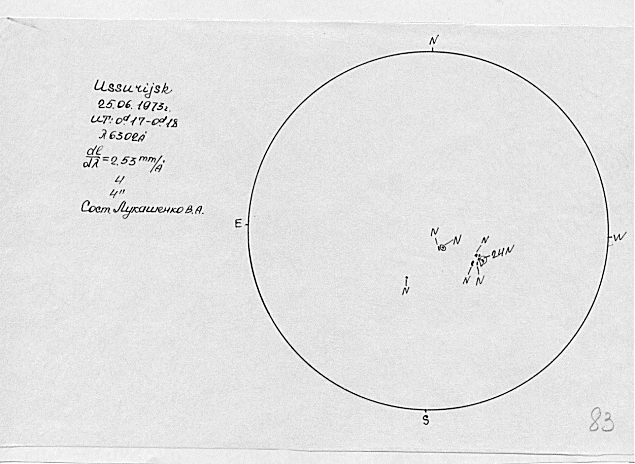 N
Ussurijsk
25.06.1973г.
UT: 0ᵈ17-0ᵈ18
λ6302Å
dl/dλ=2,53 mm/Å
4
4"
Сост Лукашенко В.А.
E
W
N N N
24N
N N
N
S
83